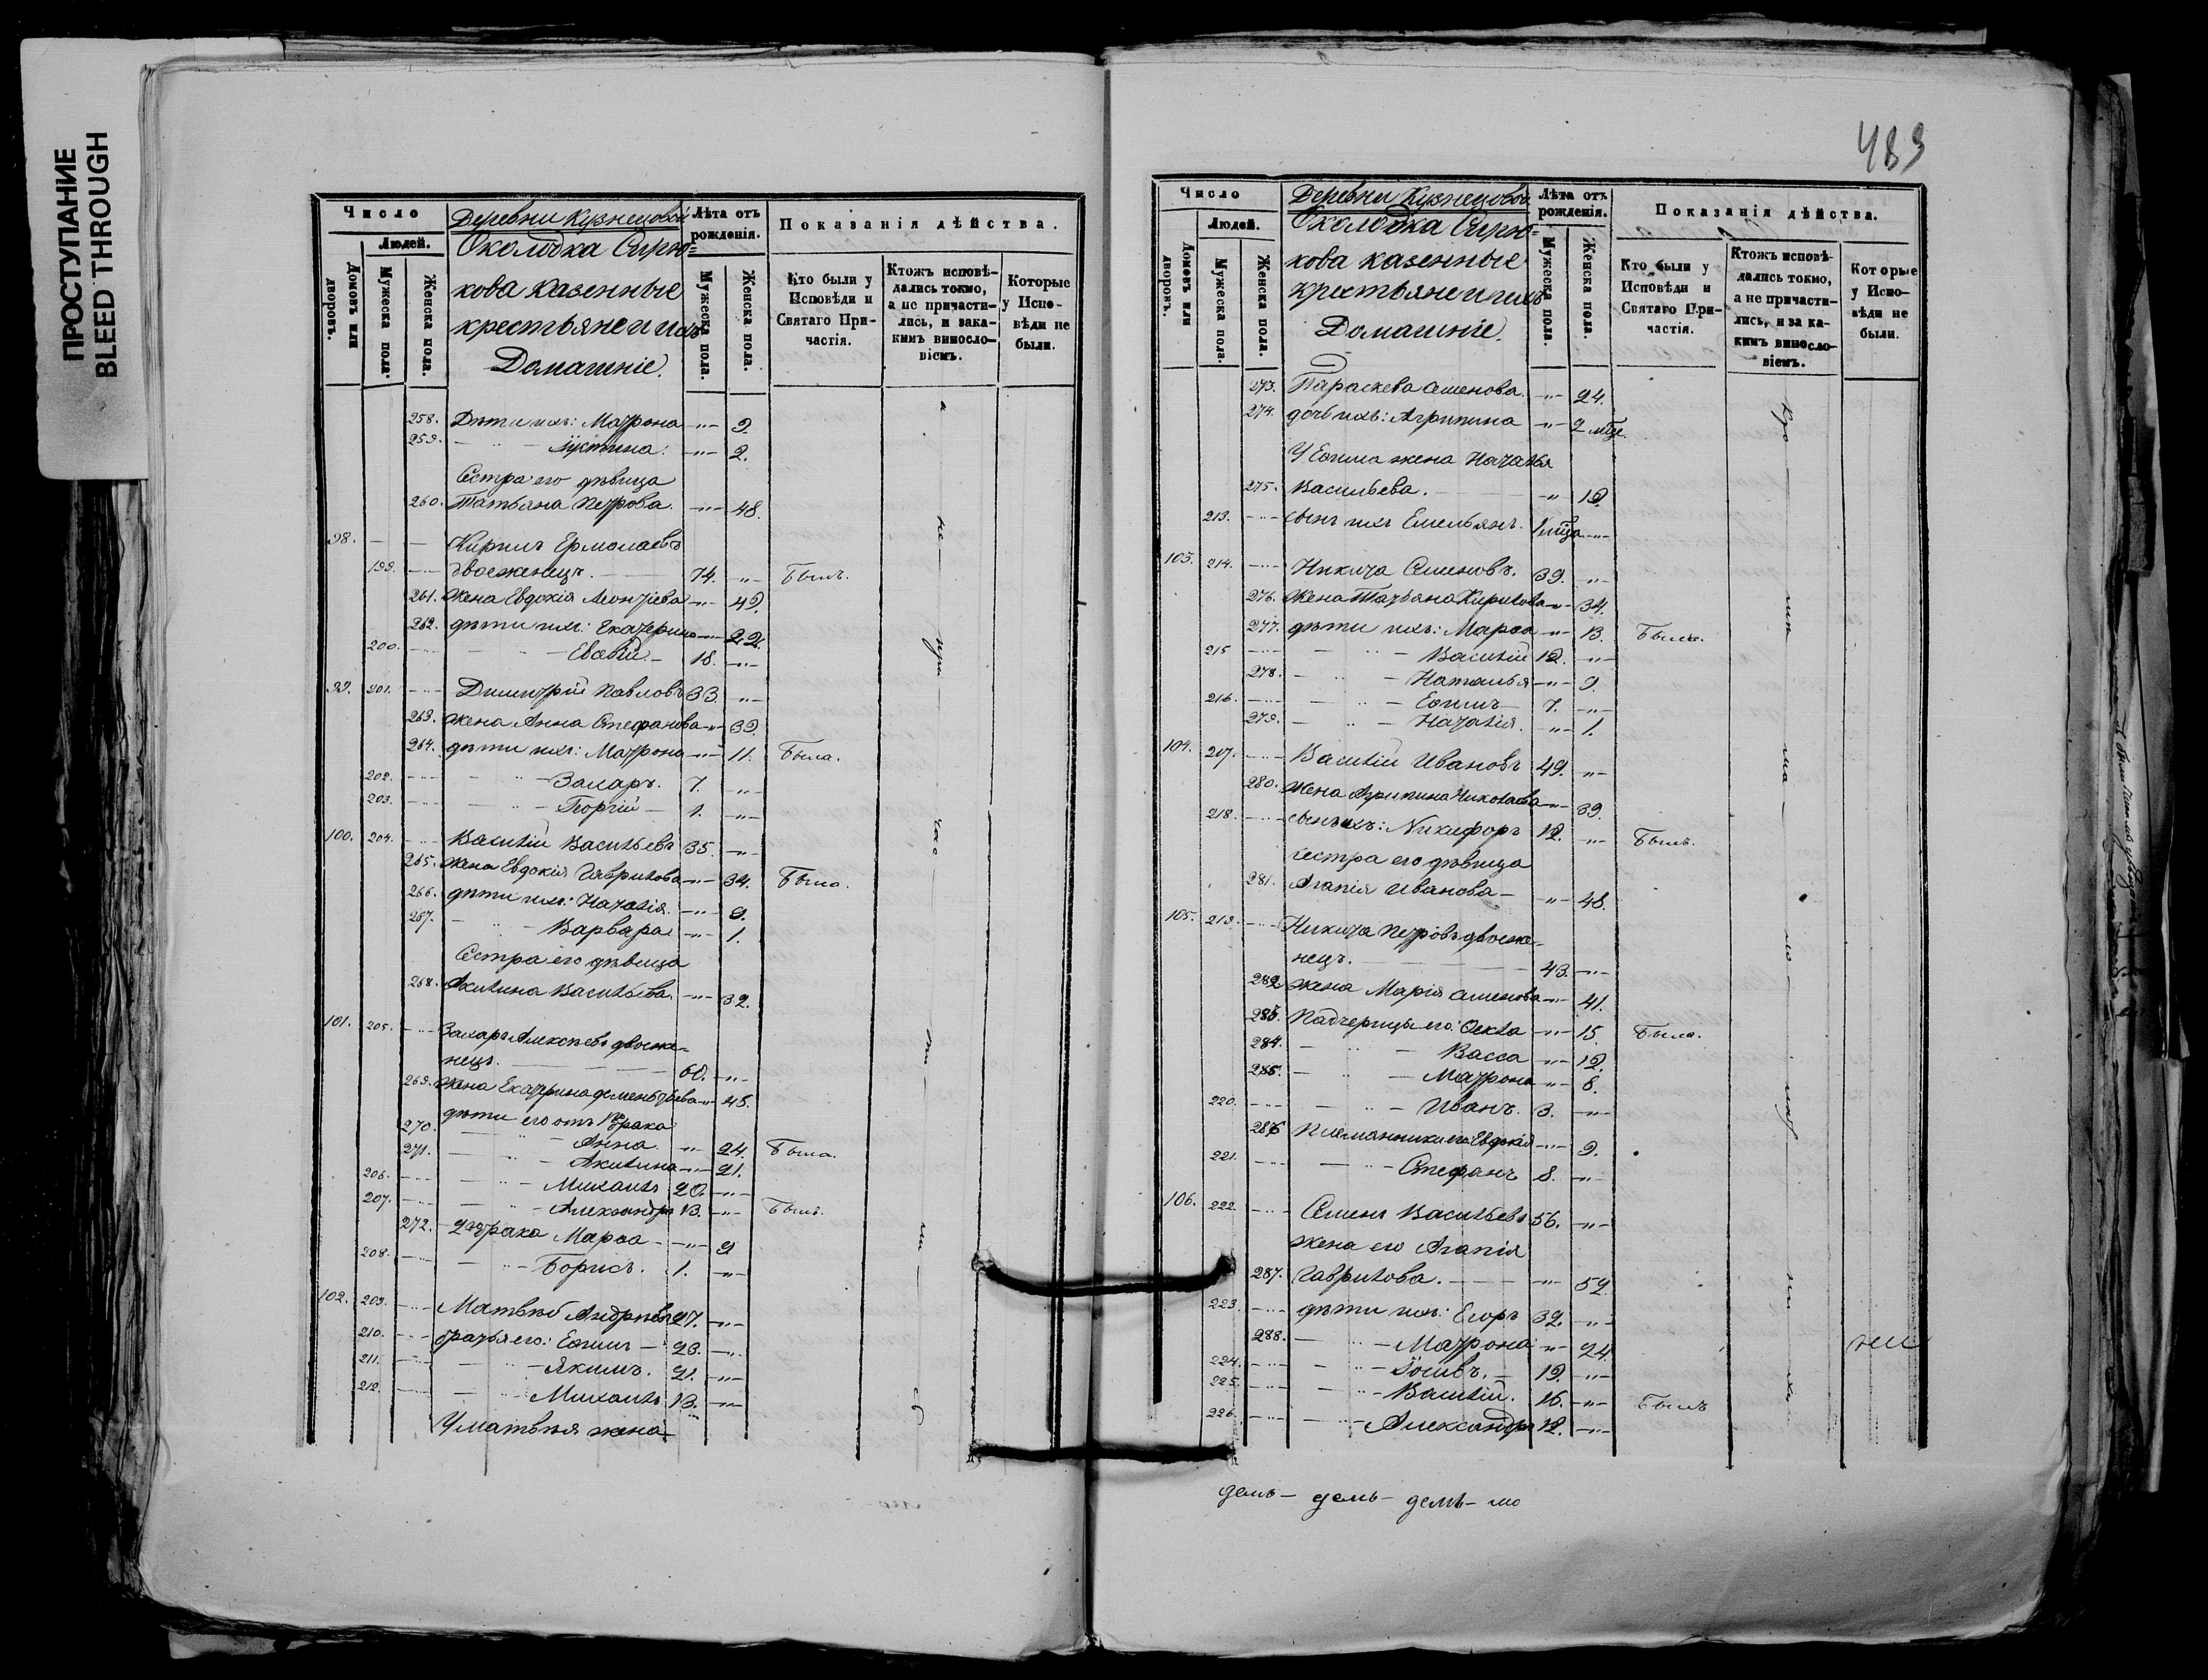 ПРОСТУПАНИЕ
BLEED THROUGH
Число
Людей.
Домовъ или дворовъ.
Мужеска пола.
Женска пола.
Деревни Кузнецовой
Околодка Сирю=
кова казенные
крестьяне и ихъ
Домашніе.
Лѣта отъ рожденія.
Мужеска пола.
Женска пола.
Показанія дѣйства.
Кто были у Исповѣди и Святаго Причастія.
Ктожъ исповѣдались токмо, а не причастились, и за какимъ винословіемъ.
Которые у Исповѣди не были.
258. Дѣти ихъ: Матрона -"- 9.
259. - " - Іустина. -"- 2.
Сестра его дѣвица
260. Татьяна Петрова. -"- 48.
98. Кирилъ Ермолаевъ
199. двоеженецъ. 74. -"- Былъ.
261. Жена Евдокія Леонтіева -"- 49.
262. дѣти ихъ: Екатерина -"- 22.
200. - " - Евѳѳій - 18. -"-
99. 201. Димитрій Павловъ 33. -"-
263. Жена Анна Стефанова -"- 39.
264. дѣти ихъ: Матрона -"- 11. Была.
202. - " - Захаръ. 7. -"-
203. - " - Георгій - 1. -"-
100. 204. Василій Васильевъ 35. -"-
265. Жена Евдокія Гаврилова -"- 34. Была.
266. дѣти ихъ: Наталія. -"- 9.
267. - " - Варвара -"- 1.
Сестра его дѣвица
268. Акилина Васильева. -"- 32.
101. 205. Захаръ Алексѣевъ двоеже-
нецъ. 60. -"-
269. Жена Екатерина Дементьева -"- 45.
дѣти его отъ 1го брака
270. - " - Анна. -"- 24. Была.
271. - " - Акилина -"- 21.
206. - " - Михаилъ 20. -"-
207. - " - Александръ 13. -"- Былъ.
272. 2го брака Марѳа - -"- 9
208. - " - Борисъ. 1. -"-
102. 209. Матвѣй Андреевъ 27. -"-
210. братья его: Еѳимъ - 23. -"-
211. - " - Якимъ. 21. -"-
212. - " - Михаилъ 13. -"-
У Матвѣя жена
483
Число
Людей.
Домовъ или дворовъ.
Мужеска пола.
Женска пола.
Деревни Кузнецовой
Околодка Сирю=
кова казенные
крестьяне и ихъ
Домашніе.
Лѣта отъ рожденія.
Мужеска пола.
Женска пола.
Показанія дѣйства.
Кто были у Исповѣди и Святаго Причастія.
Ктожъ исповѣдались токмо, а не причастились, и за какимъ винословіемъ.
Которые у Исповѣди не были.
273. Параскева Семенова. -"- 24.
274. дочь ихъ: Агрипина -"- 2 мѣс.
У Еѳима жена Наталья
275. Васильева. -"- 19.
213. сынъ ихъ Емельянъ. 1 мѣсц. -"-
103. 214. Никита Семеновъ. 39. -"-
276. Жена Татьяна Кирилова -"- 34.
277. дѣти ихъ: Марѳа -"- 13. Была.
215 - " - Василій 12. -"-
278. - " - Наталья -"- 9.
216. - " - Еѳимъ - 7. -"-
279. - " - Наталія. -"- 1.
104. 217. Василій Ивановъ 49. -"-
280. Жена Агрипина Николаева -"- 39.
218. сынъ ихъ: Никифоръ 12. -"- Былъ.
сестра его дѣвица
281. Агапія Иванова - -"- 48.
105. 219. Никита Петровъ двоеже-
нецъ. 43. -"-
282. Жена Марія Семенова -"- 41.
283. Падчерицы его: Ѳекла -"- 15. Была.
284. - " - Васса -"- 12.
285. - " - Матрона -"- 8.
220. - " - Иванъ. 3. -"-
286 Племянники его Евдокія -"- 9.
221. - " - Стефанъ 8. -"-
106. 222. Семенъ Васильевъ 56. -"-
жена его Агапія
287. Гаврилова. -"- 52.
223. дѣти ихъ: Егоръ 32. -"-
288. - " - Матрона -"- 24.
224. - " - Іосифъ. - 19. -"-
225. - " - Василій. 16. -"- Былъ
226. - " - Александръ 12. -"-
демъ - демъ - демъ - мо